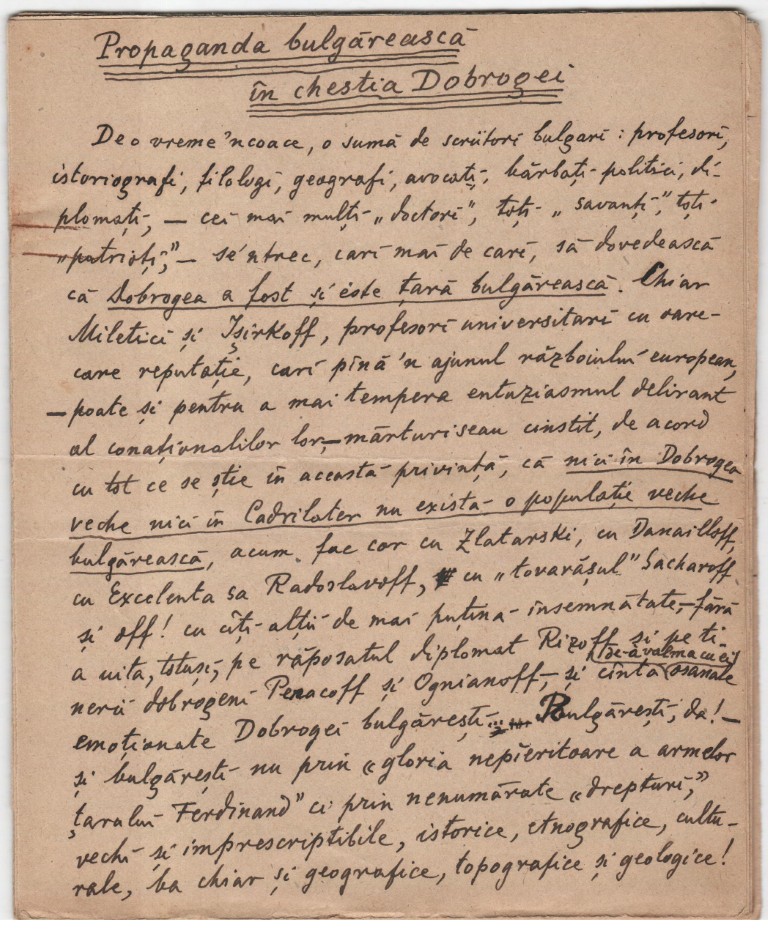 Propaganda bulgărească
în chestia Dobrogei
De o vreme 'ncoace, o sumă de scriitori bulgari: profesori,
istoriografi, filologi, geografi, avocați, bărbați politici, di-
plomați, — cei mai mulți „doctori”, toți „savanți”, toți
„patrioți”, — se 'ntrec, cari mai de cari, să dovedească
că Dobrogea a fost și este țară bulgărească. Chiar
Miletici și Ișirkoff, profesori universitari cu oare-
care reputație, cari pînă 'n ajunul războiului european,
— poate și pentru a mai tempera entuziasmul delirant
al conaționalilor lor, — mărturiseau cinstit, de acord
cu tot ce se știe în această privință, că nici în Dobrogea
veche nici în Cadrilater nu există o populație veche
bulgărească, acum fac cor cu Zlatarski, cu Danailloff,
cu Excelenta sa Radoslavoff, cu „tovarășul” Sacharoff
și off! cu cîți alții de mai puțină însemnătate, — fără
a uita, totuși, pe răposatul diplomat Rizoff și pe ti-
nerii dobrogeni Penacoff și Ognianoff, — și cîntă de-a valma cu ei osanale
emoționate Dobrogei bulgărești. Bulgărești, da! —
și bulgărești nu prin „gloria nepieritoare a armelor
țarului Ferdinand” ci prin nenumărate „drepturi”,
vechi și imprescriptibile, istorice, etnografice, cultu-
rale, ba chiar și geografice, topografice și geologice!